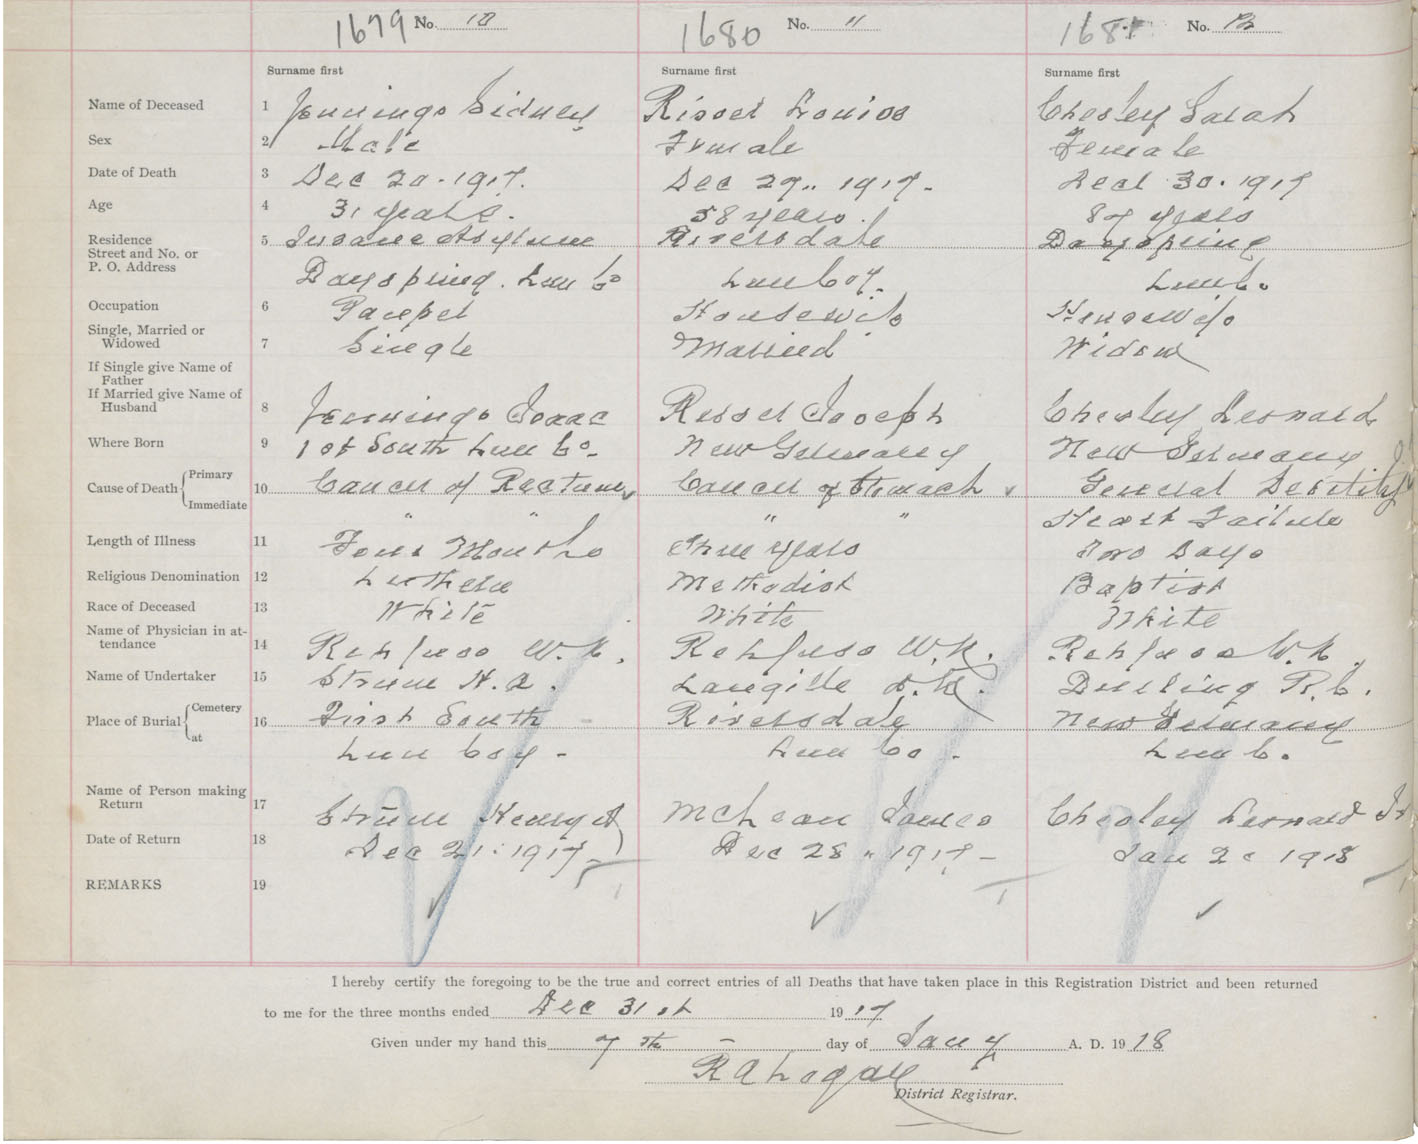 1679 No. 10 1680 No. 11 1681 No. 12
Surname first Surname first Surname first
Name of Deceased 1 Jennings Sidney Risser Louisa Chesley Sarah
Sex 2 Male Female Female
Date of Death 3 Dec 20 - 1917. Dec 27.. 1917 - Decr 30 . 1917
Age 4 31 years. 58 years. 87 years
Residence 5 Insane Asylum Riversdale Dayspring
Street and No. or
P. O. Address Dayspring. Lun Co Lun Coy. Lun Co.
Occupation 6 Pauper Housewife Housewife
Single, Married or
Widowed 7 Single Married Widow
If Single give Name of
Father
If Married give Name of
Husband 8 Jennings Isaac Risser Joseph Chesley Leonard
Where Born 9 1st South Lun Co- New Germany New Germany
Cause of Death { Primary 10 Cancer of Rectum Cancer of Stomach General Debility
Immediate " " " " Heart Failure
Length of Illness 11 Four Months Three years Two Days
Religious Denomination 12 Luthern Methodist Baptist
Race of Deceased 13 White White White
Name of Physician in at-
tendance 14 Rehfuss W. N. Rehfuss W. N. Rehfuss W. N.
Name of Undertaker 15 Strum H. A. Langille Dueling R. C.
Place of Burial { Cemetery 16 First South Riversdale New Germany
at Lun Coy - Lun Co - Lun C.
Name of Person making
Return 17 Strum Henry A McLean James Chesley Leonard Jr
Date of Return 18 Dec 21 . 1917 - Dec 28 " 1917 - Jan 2 1918
REMARKS 19
I hereby certify the foregoing to be the true and correct entries of all Deaths that have taken place in this Registration District and been returned
to me for the three months ended Dec 31st 1917
Given under my hand this 7th - day of Jany A. D. 1918
R A Logan
District Registrar.